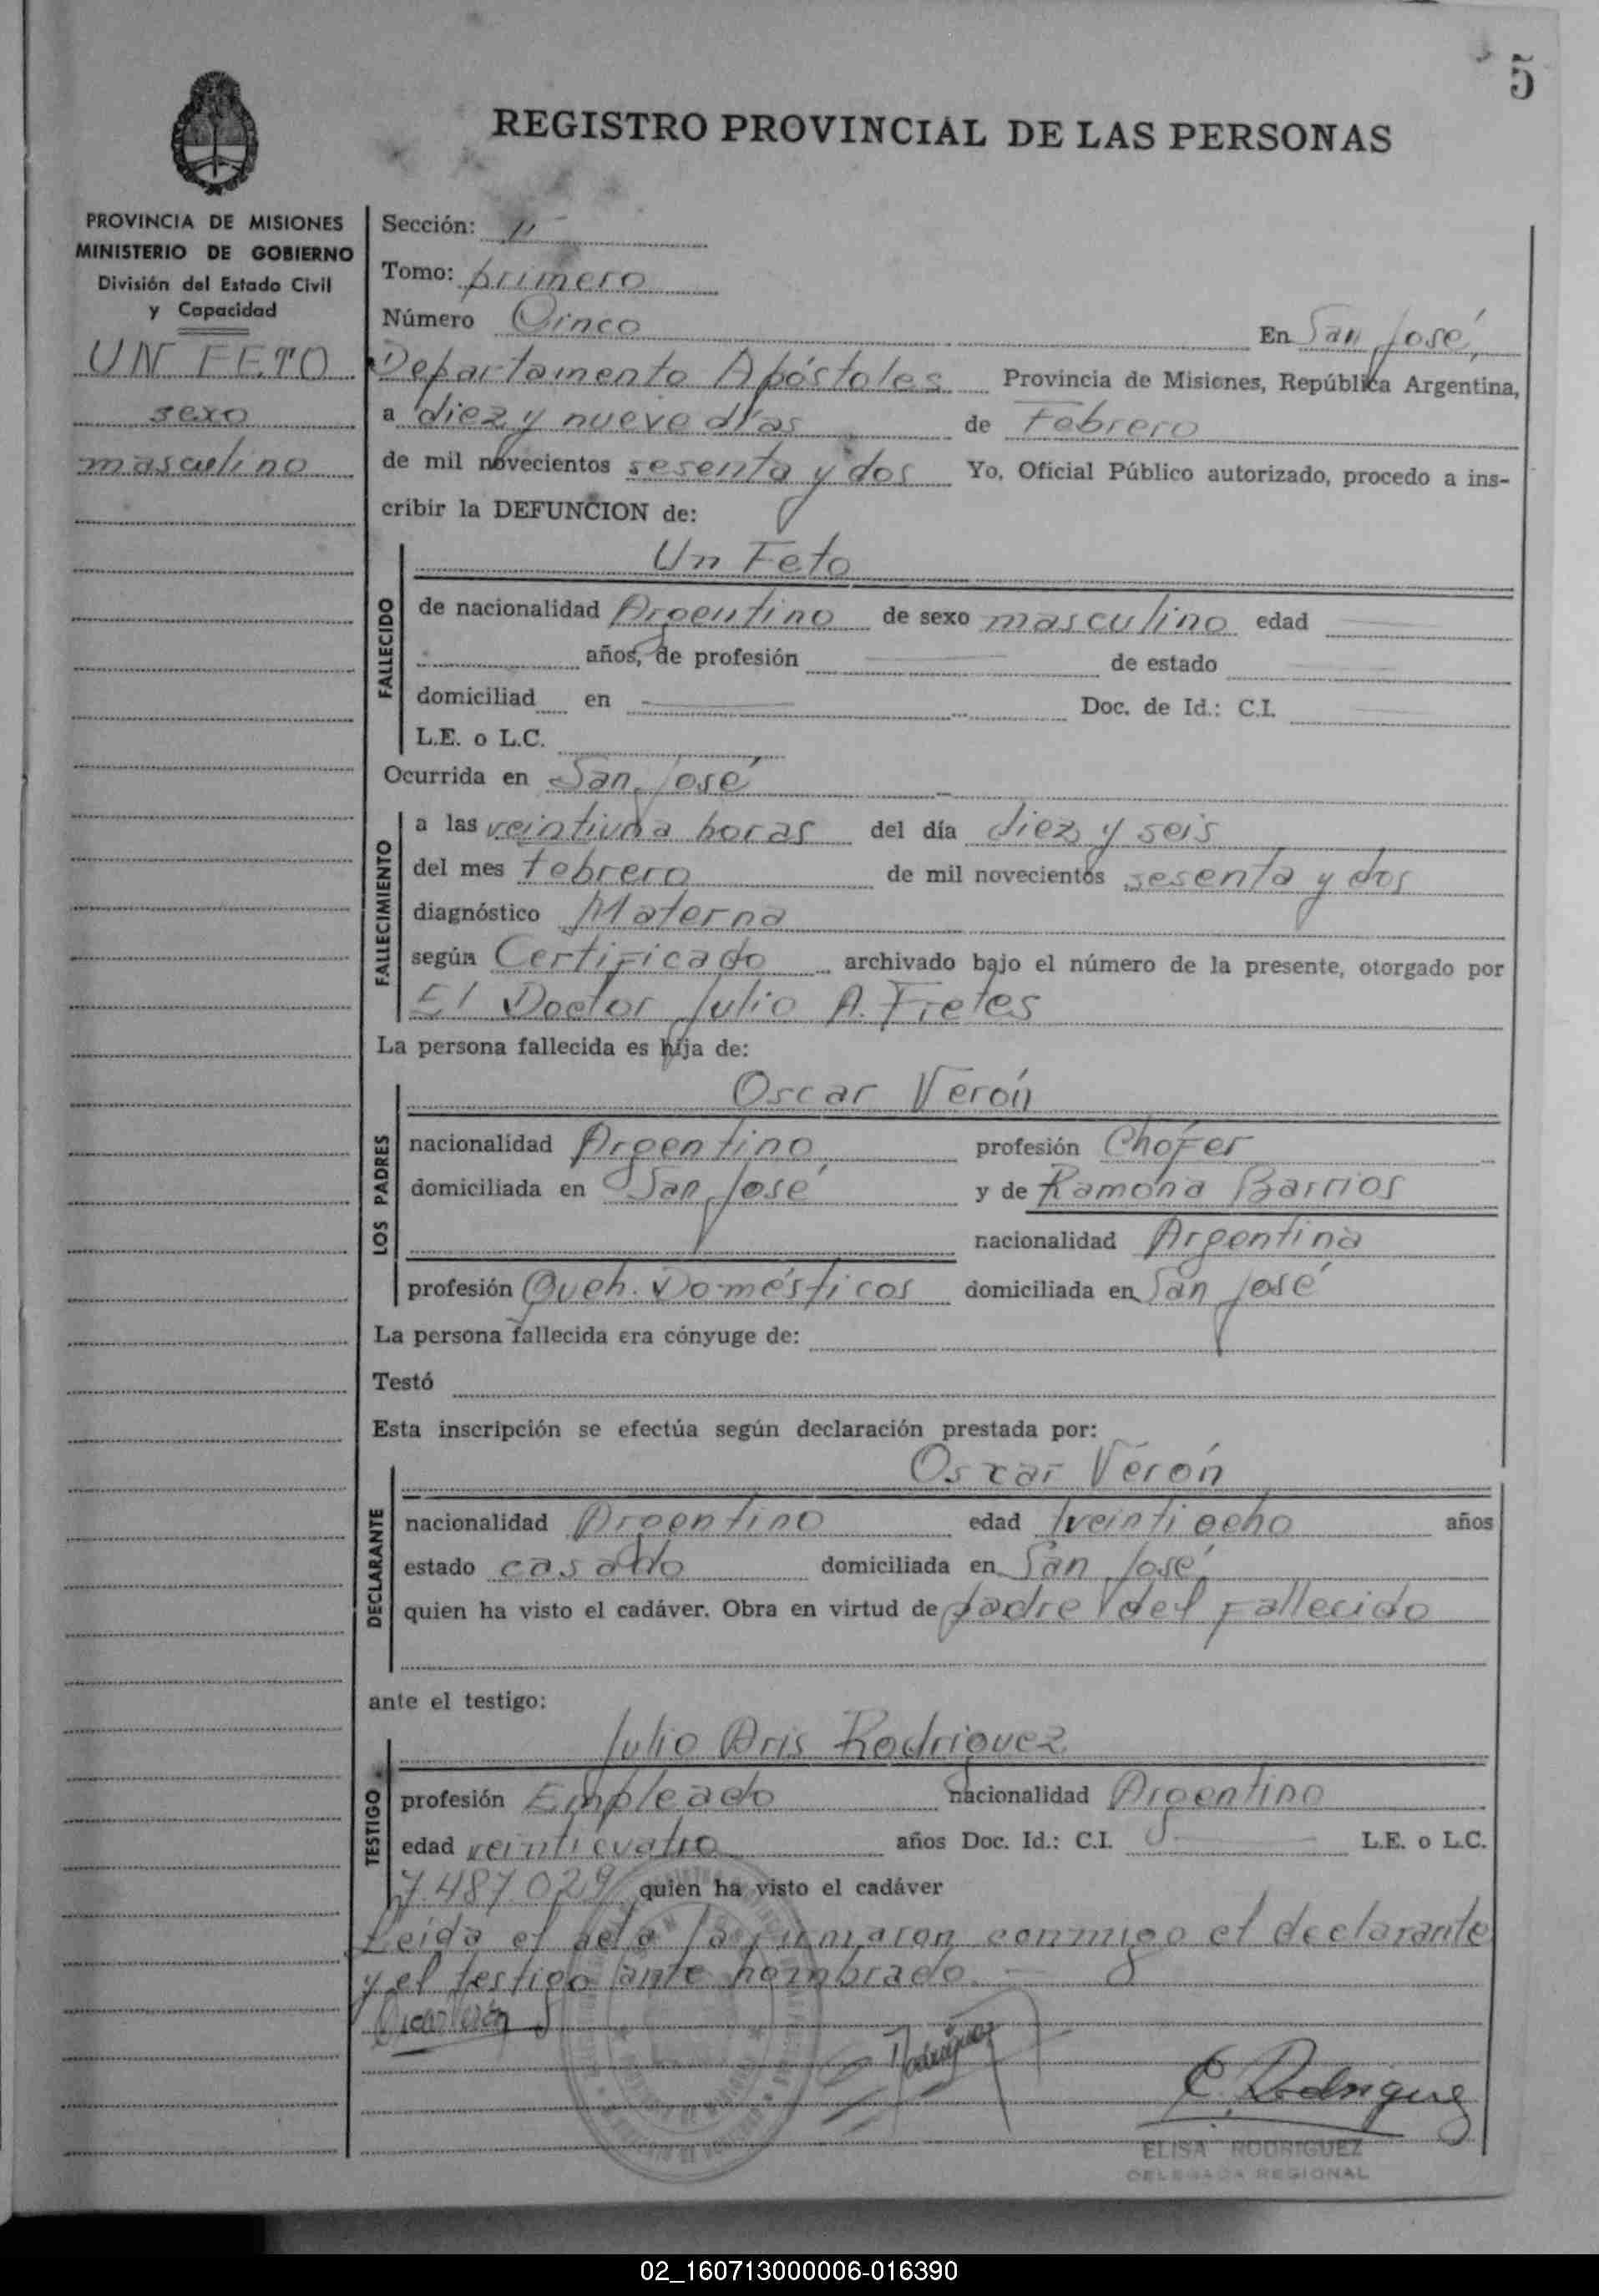 5
REGISTRO PROVINCIAL DE LAS PERSONAS
PROVINCIA DE MISIONES
MINISTERIO DE GOBIERNO
División del Estado Civil
y Capacidad
UN FETO
sexo
masculino
Sección:
Tomo: primero
Número Cinco En San José,
Departamento Apóstoles Provincia de Misiones, República Argentina,
a diez y nueve días de Febrero
de mil novecientos sesenta y dos Yo, Oficial Público autorizado, procedo a ins-
cribir la DEFUNCION de:
FALLECIDO
Un Feto
de nacionalidad Argentino de sexo masculino edad
años, de profesión de estado
domiciliad en Doc. de Id.: C.I.
L.E. o L.C.
Ocurrida en San José
FALLECIMIENTO
a las veintiuna horas del día diez y seis
del mes febrero de mil novecientos sesenta y dos
diagnóstico Materna
según Certificado archivado bajo el número de la presente, otorgado por
El Doctor Julio A. Fretes
La persona fallecida es hija de:
LOS PADRES
Oscar Verón
nacionalidad Argentino profesión Chofer
domiciliada en San José y de Ramona Barrios
nacionalidad Argentina
profesión Queh. Domésticos domiciliada en San José
La persona fallecida era cónyuge de:
Testó
Esta inscripción se efectúa según declaración prestada por:
DECLARANTE
Oscar Verón
nacionalidad Argentino edad veintiocho años
estado casado domiciliada en San José,
quien ha visto el cadáver. Obra en virtud de padre del fallecido
ante el testigo:
TESTIGO
Julio Aris Rodriguez
profesión Empleado nacionalidad Argentino
edad veinticuatro años Doc. Id.: C.I. L.E. o L.C.
7.487.029 quien ha visto el cadáver
Leída el acta la firmaron conmigo el declarante
y el testigo ante nombrado.-
Oscar Verón
Rodriguez
E. Rodriguez
ELISA RODRIGUEZ
DELEGADA REGIONAL
02_160713000006-016390